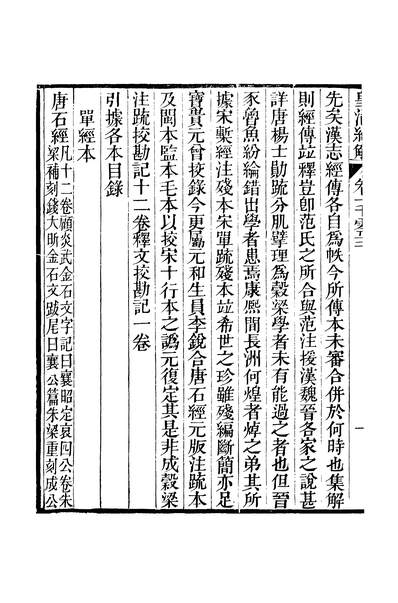 先矣漢志經傳各自爲帙今所傳本未審合併於何時也集解
則經傳竝釋豈卽范氏之所合與范注援漢魏晉各家之說甚
詳唐楊士勛疏分肌擘理爲穀梁學者未有能過之者也但晉
豕魯魚紛綸錯出學者患焉康熙間長洲何煌者焯之弟其所
據宋槧經注殘本宋單疏殘本竝希世之珍雖殘編斷簡亦足
寶貴元曾挍錄今更屬元和生員李銳合唐石經元版注疏本
及閩本監本毛本以挍宋十行本之譌元復定其是非成穀梁
注疏挍勘記十二卷釋文挍勘記一卷
引據各本目錄
單經本
唐石經凡十二卷顧炎武金石文字記曰襄昭定哀四公卷朱
梁補刻錢大昕金石文跋尾曰襄公篇朱梁重刻成公